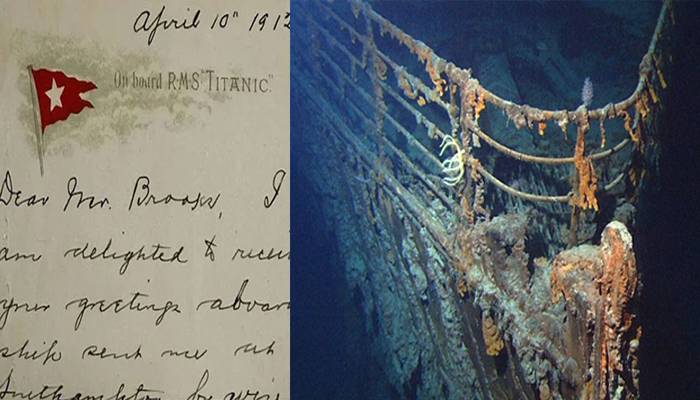 April 10th 1912
On board R.M.S "TITANIC."
Dear Mr. Brooks, I
am delighted to recei
your greetings aboar
ship sent me at
Southampton by wire